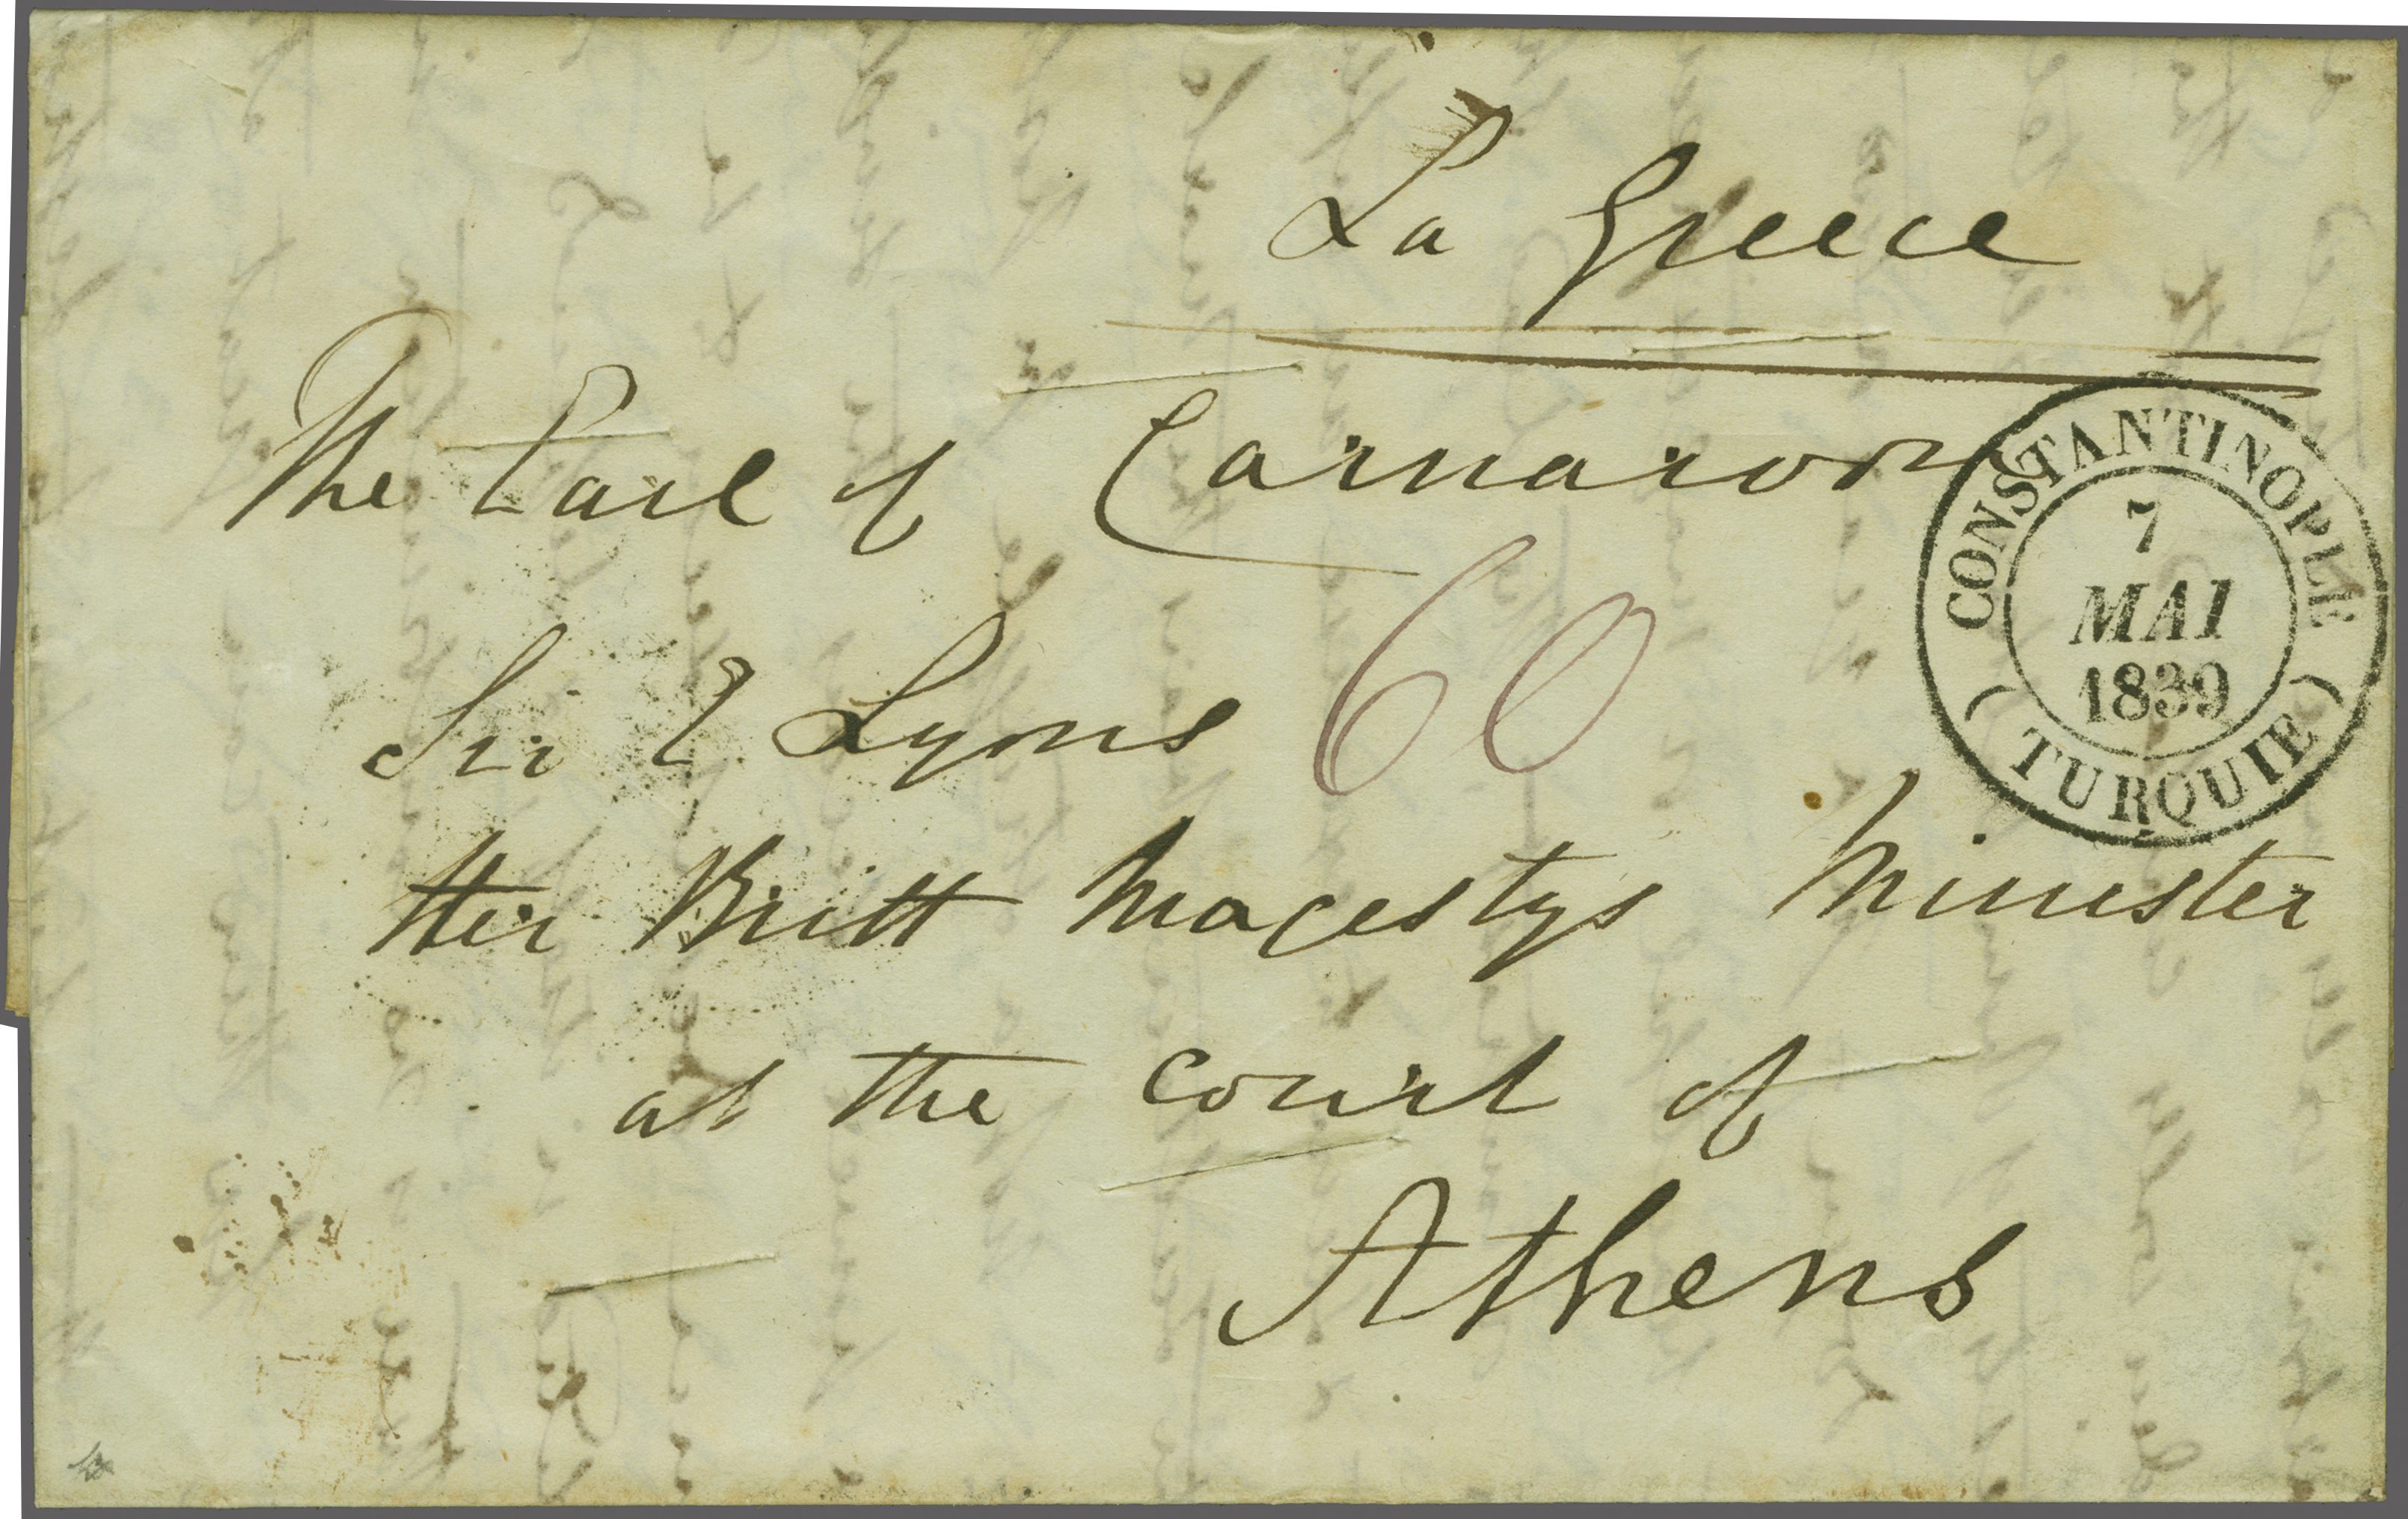 La Greece
The Earl of Carnarvon
Sir E Lyons 60
Her Britt Majestys Minister
at the court of
Athens
CONSTANTINOPLE
7
MAI
1839
(TURQUIE)